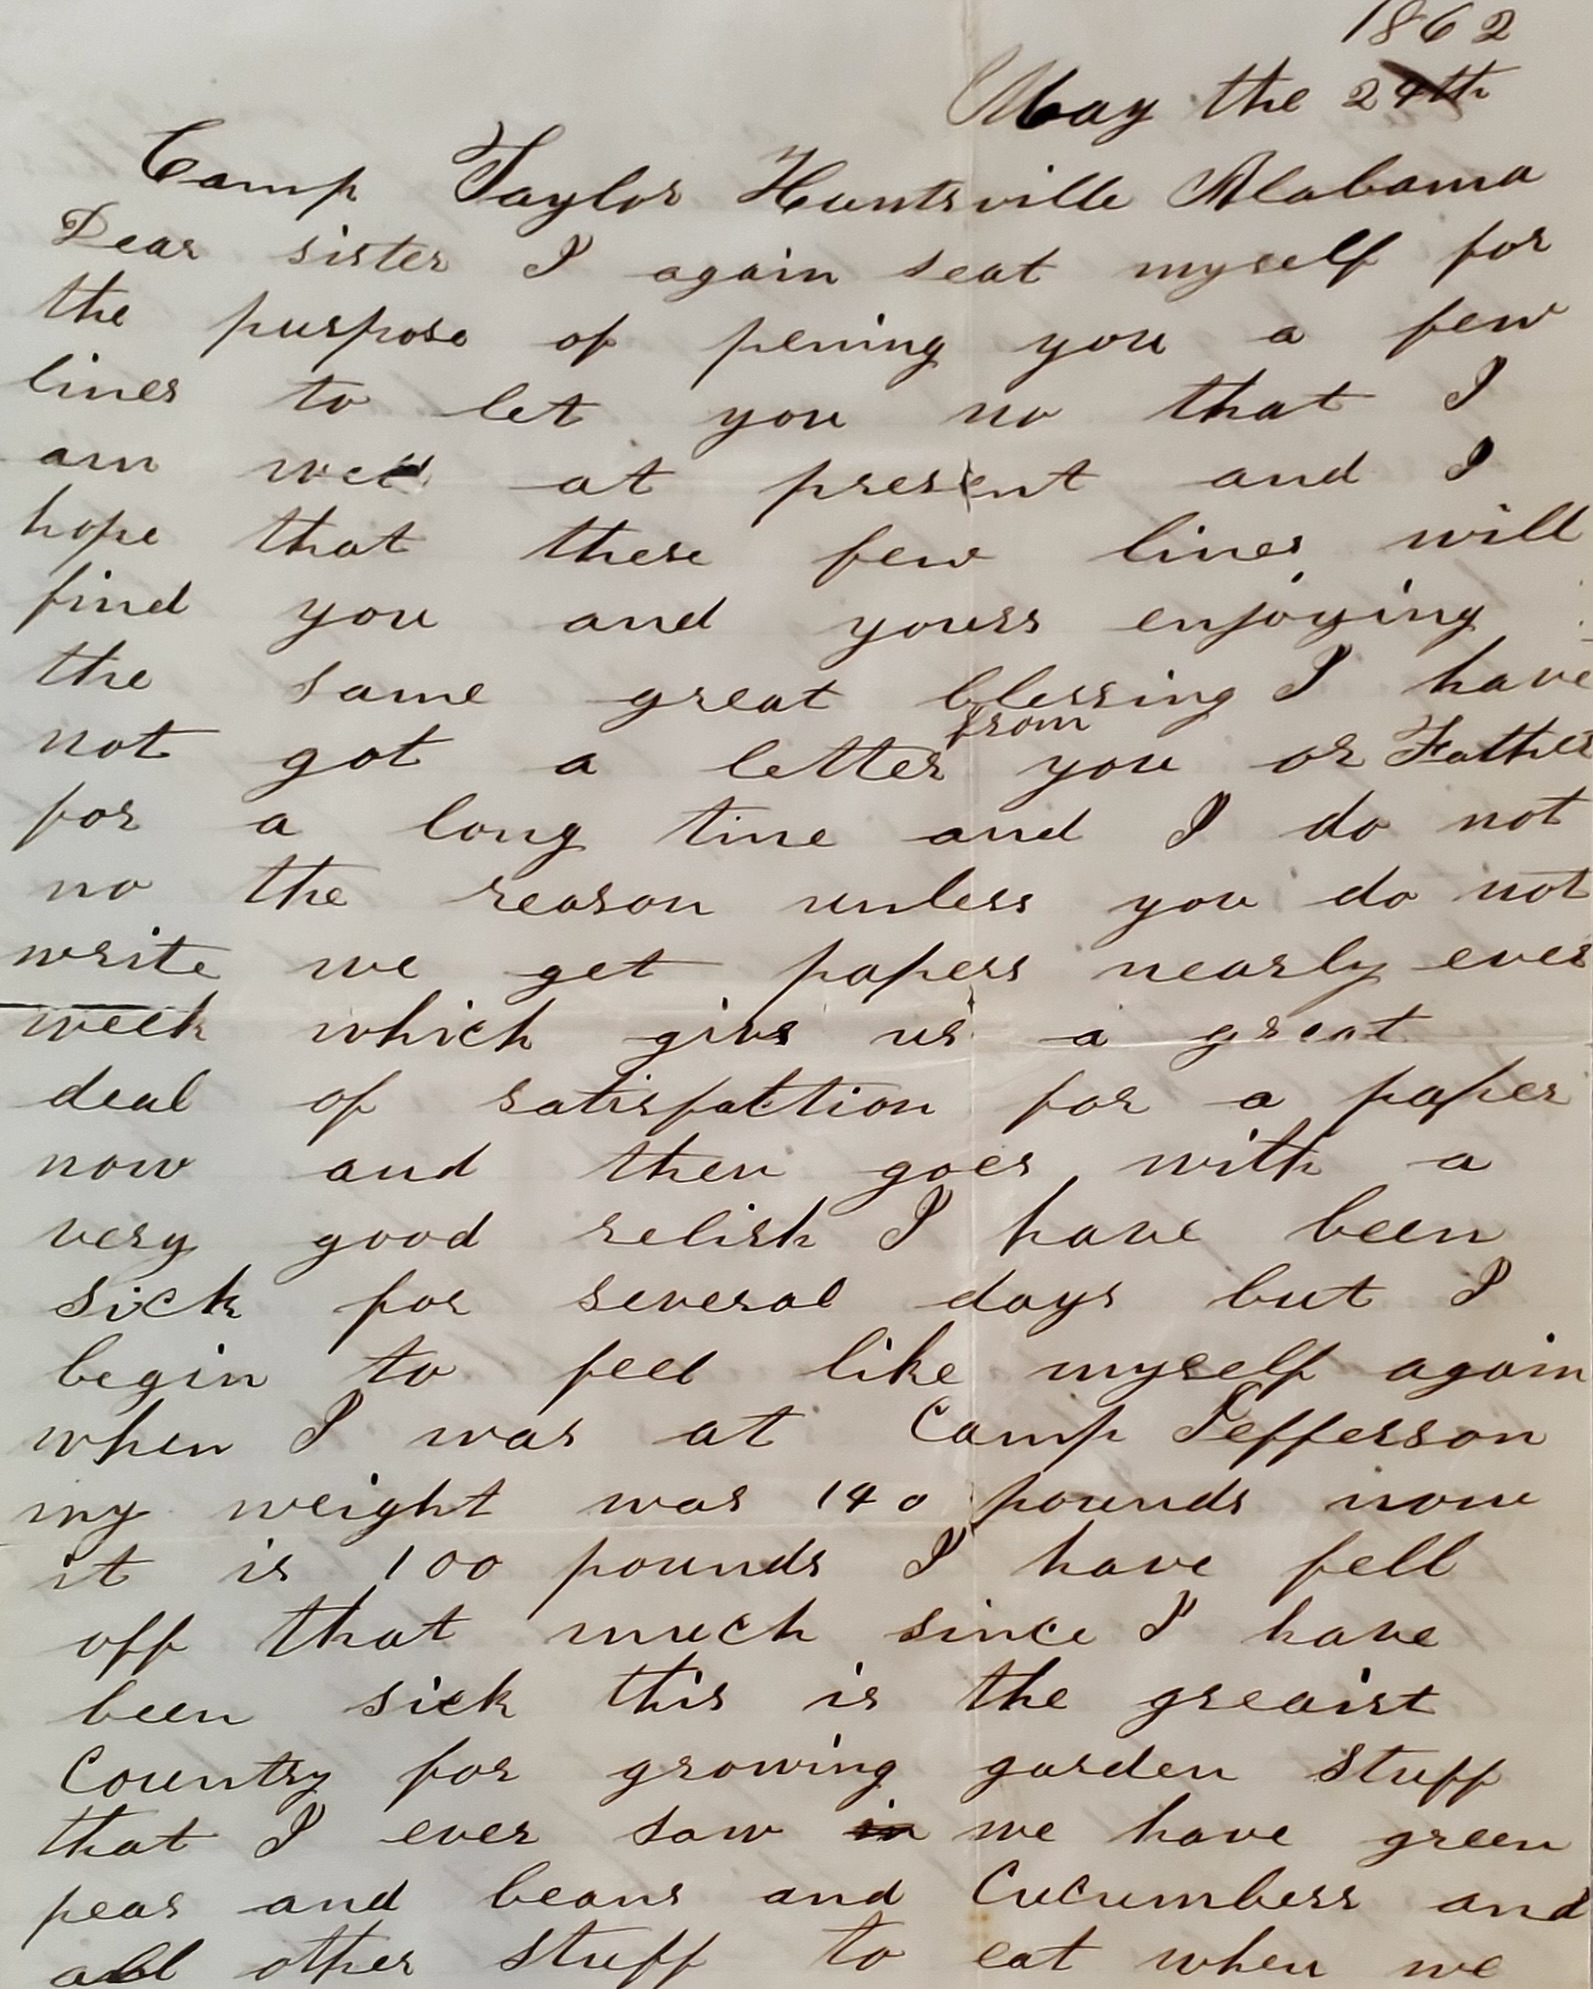 1862
May the 24th
Camp Taylor Huntsville Alabama
Dear sister I again seat myself for
the purpose of pening you a few
lines to let you no that I
am well at present and I
hope that these few lines will
find you and yours enjoying
the same great blessing I have
from
not got a letter you or Father
for a long tine and I do not
no the reason unless you do not
write we get papers nearly ever
week which givs us a great
deal of satisfattion for a paper
now and then goes with a
very good relish I have been
sick for several days but I
begin to feel like myself again
when I was at Camp Jefferson
my weight was 140 pounds now
it is 100 pounds I have fell
off that much since I have
been sick this is the greaist
Country for growing garden stuff
that I ever saw in we have green
peas and beans and Cucumbers and
all other stuff to eat when we